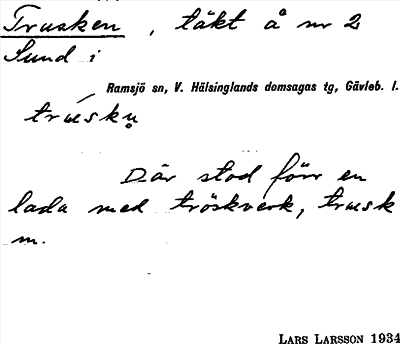 Trusken, täkt å nr 2
Sund i
Ramsjö sn, V. Hälsinglands domsagas tg, Gävleb. l.
Där stod förr en
lada med tröskverk, trusk
m.
LARS LARSSON 1934